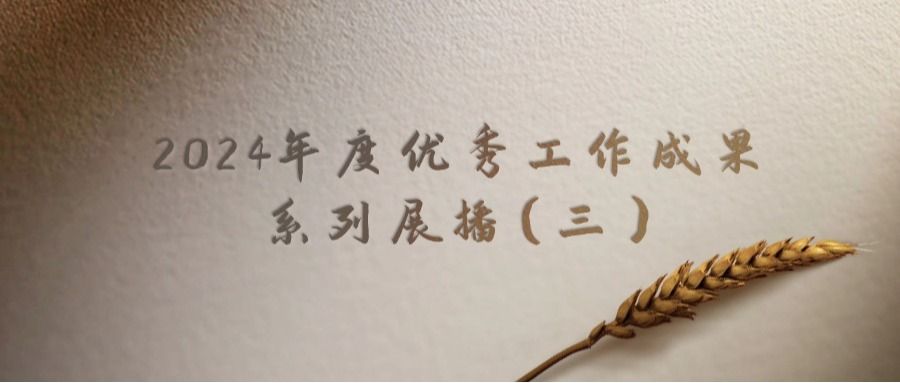 2024年度优秀工作成果
系列展播(三)